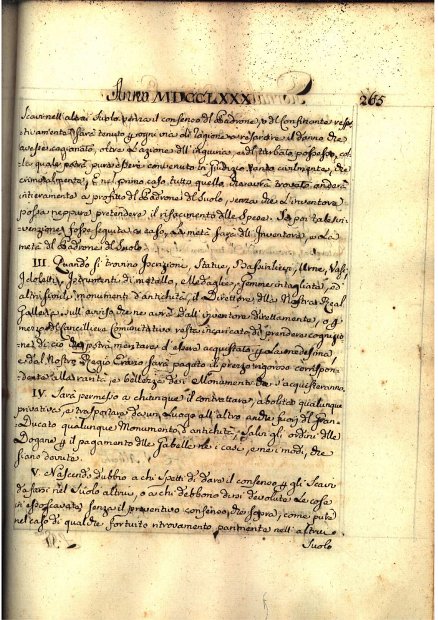 Anno MDCCLXXX
265
Scavi nell'altrui Suolo senza il consenso del Padrone, o del Confinante respe-
ttivamente sarà tenuto per ogni via di ragione a risarcire il danno che
avesse cagionato, oltre l'azione dell'ingiuria, e di turbato possesso, col-
le quali potrà pure essere convenuto in Giudizio tanto civilmente, che
criminalmente; E nel primo caso tutto quello che sarà trovato anderà
intieramente a profitto del Padrone del Suolo, senza che l'inventore
possa neppure pretendere il rifacimento delle Spese. Se poi tale in-
venzione fosse seguita a caso, la metà sarà dell'Inventore, e la
metà del Padrone del Suolo
III. Quando si trovino Iscrizioni, Statue, Bassirilievi, Urne, Vasi,
Idoletti, Istrumenti di metallo, Medaglie, Gemme intagliate, ed
altri simili monumenti d'antichità, il Direttore della Nostra Real
Galleria sull'avviso che ne avrà dall'inventore direttamente, o per
mezzo del Cancelliere Comunitativo resta incaricato di prendere cognizio-
ne di ciò che potrà meritare d'esser acquistato per la medesima,
e dal Nostro Regio Erario sarà pagato il prezzo rigoroso corrispon-
dente alla rarità, e bellezza dei Monumenti che s'acquisteranno.
IV. Sarà permesso a chiunque il contrattare, abolita qualunque
privativa, e trasportare da un Luogo all'altro anche fuori di Gran-
Ducato qualunque Monumento d'antichità, Salvi gli ordini delle
Dogane per il pagamento delle Gabelle nei casi, e nei modi, che
siano dovute.
V. Nascendo dubbio a chi spetti di dare il consenso per gli Scavi
da farsi nel Suolo altrui, o a chi debbono dirsi devolute le cose
ivi escavate senza il preventivo consenso, che sopra, come pure
nel caso di qualche fortuito ritrovamento parimente nell'altrui
Suolo